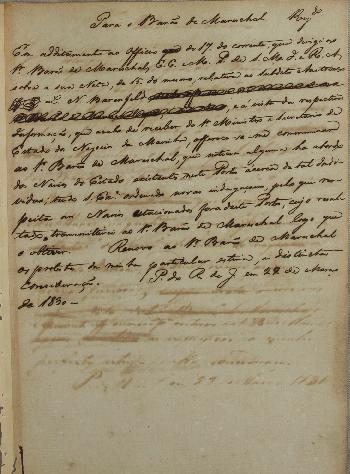 Para o Barão de Mareschal
Em additamento ao Officio de 17 do corrente, que dirigi ao
Sr. Barão de Mareschal, E. E. e M. P. de S. M. I. e R. A.
sobre a sua Nota, de 15 do mesmo, relativa ao subdito Austriaco
N. Barenfeld e á vista da respectiva
informação, que acabo de receber do Sr. Ministro e Secretario de
Estado dos Negocios da Marinha, offerece-se-me communicar
ao Sr. Barão de Mareschal, que noticia alguma ha a bordo
dos Navios do Estado existentes neste Porto acerca de tal indi-
viduo, tendo S. Exa. ordenado novas indagaçoens, pelo que res-
peita aos Navios estacionados fora deste Porto, cujo resul-
tado, transmittirei ao Sr. Barão de Mareschal logo que
o obtiver. Renovo ao Sr. Barão de Mareschal
os protestos da minha particular estima, e distincta
Consideração. P. do R. de J. em 27 de Março
de 1830 —